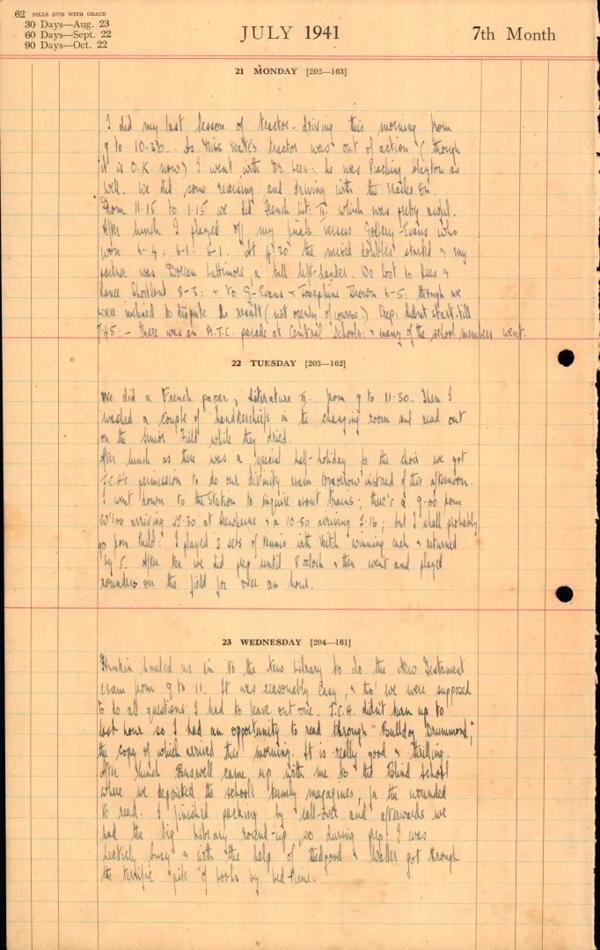 62 BILLS DUE WITH GRACE
30 Days—Aug. 23
60 Days—Sept. 22
90 Days—Oct. 22
JULY 1941
7th Month
21 MONDAY [202—163]
I did my last lesson of tractor-driving this morning from
9 to 10-30. As Miss tractor was out of action (though
it is O.K. now) I went with Mr Lees: he was teaching as
well. We did some reversing and driving with the
From 11-15 to 1-15 we did French Lit. II which was pretty
After lunch I played off my finals versus Godfrey-Evans who
won 6-4: 6-1: 6-1. At the mixed doubles started & my
partner was Doreen Lattimore a tall left-hander. We lost to Lees &
Shortland 8-3: & to G-Evans & Josephine Brown 6-5: though we
were inclined to dispute the result (not openly of course.) Prep: didn't start till
7.45:- There was an A.T.C. parade at Central Schools: & many of the school members went.
22 TUESDAY [203—162]
We did a French paper, Literature II from 9 to 11-30. Then I
washed a couple of handkerchiefs in the changing room and read out
on the Senior Field while they dried.
After lunch as there was a special half-holiday for the choir we got
J.C.H's permission to do our divinity exam tomorrow instead of this afternoon.
I went down to the Station to inquire about trains; there's a 9-00 from
arriving 12-30 at & a 10-50 arriving 2-16; but I shall probably
go from I played 3 sets of tennis with winning each & returned
by 5. After tea we did prep until 8 oclock & then went and played
rounders on the field for over an hour.
23 WEDNESDAY [204—161]
hauled us in to the New Library to do the New Testament
exam from 9 to 11. It was reasonably easy, & tho' we were supposed
to do all questions I had to leave out one. J.C.H. didn't turn up to
last hour so I had an opportunity to read through "Bulldog Drummond,"
the copy of which arrived this morning. It is really good & thrilling.
After lunch came up with me to the Blind School
where we deposited the school's family magazines, for the wounded
to read. I finished packing by call-over and afterwards we
had the big library round-up, so during prep I was
busy & with the help of & got through
the terrific pile of books by bed-time.